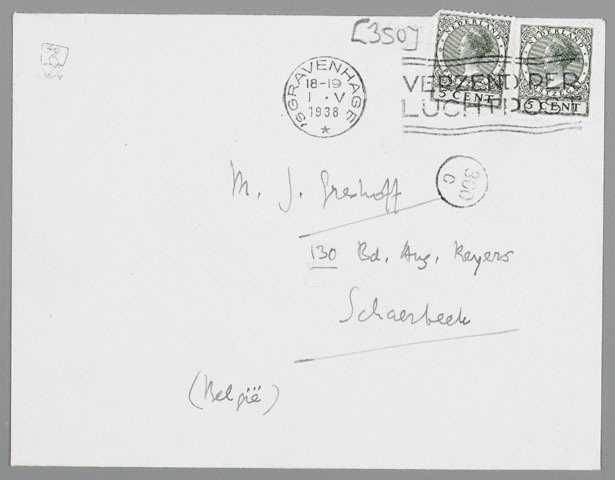 [350]
NEDERLAND NEDERLAND
5 CENT 5 CENT
'S GRAVENHAGE
18-19
1 · V
1938
*
VERZEND PER
LUCHTPOST
300
C
M. J. Greshoff
130 Bd. Aug. Reyers
Schaerbeek
(België)